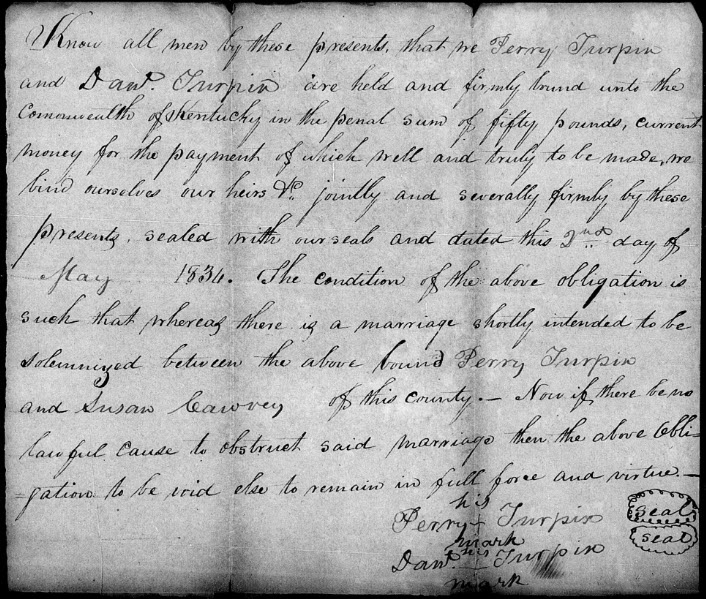 Know all men by these presents, that we Perry Turpin
and Danl. Turpin are held and firmly bound unto the
Commonwealth of Kentucky in the penal sum of fifty pounds, current
money for the payment of which well and truly to be made, we
bind ourselves our heirs &c. jointly and severally firmly by these
presents, sealed with our seals and dated this 2nd day of
May 1834. The condition of the above obligation is
such that whereas there is a marriage shortly intended to be
solemnized between the above bound Perry Turpin
and Susan Cawvey of this county. — Now if there be no
lawful cause to obstruct said marriage then the above Obli-
-gation to be void else to remain in full force and virtue. —
his
Perry + Turpin seal
mark
his
Danl. + Turpin seal
mark